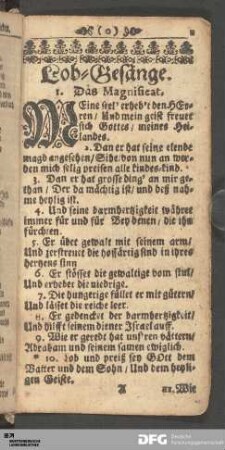 (o)
Lob-Gesänge.
1. Das Magnificat.
Meine seel' erheb't den HEr-
ren/ Und mein geist freuet
sich Gottes/ meines Hei-
landes.
2. Dan er hat seine elende
magd angesehen/ Sihe/ von nun an wer-
den mich selig preisen alle kindes-kind.
3. Dan er hat grosse ding' an mir ge-
than/ Der da mächtig ist/ und deß nah-
me heylig ist.
4. Und seine barmhertzigkeit währet
immer für und für Bey denen/ die ihn
fürchten.
5. Er übet gewalt mit seinem arm/
Und zerstreuet die hoffärtig sind in ihres
hertzens sinn
6. Er stösset die gewaltige vom stul/
Und erhebet die niedrige.
7. Die hungerige füllet er mit gütern/
Und lässet die reiche leer.
8. Er gedencket der barmhertzigkeit/
Und hilfft seinem diener Israel auff.
9. Wie er geredt hat unsren vättern/
Abraham und seinem samen ewiglich.
* 10. Lob und preiß sey GOtt dem
Vatter und dem Sohn/ Und dem heyli-
gen Geiste.
A
11. Wie
DFG
Deutsche
Forschungsgemeinschaft